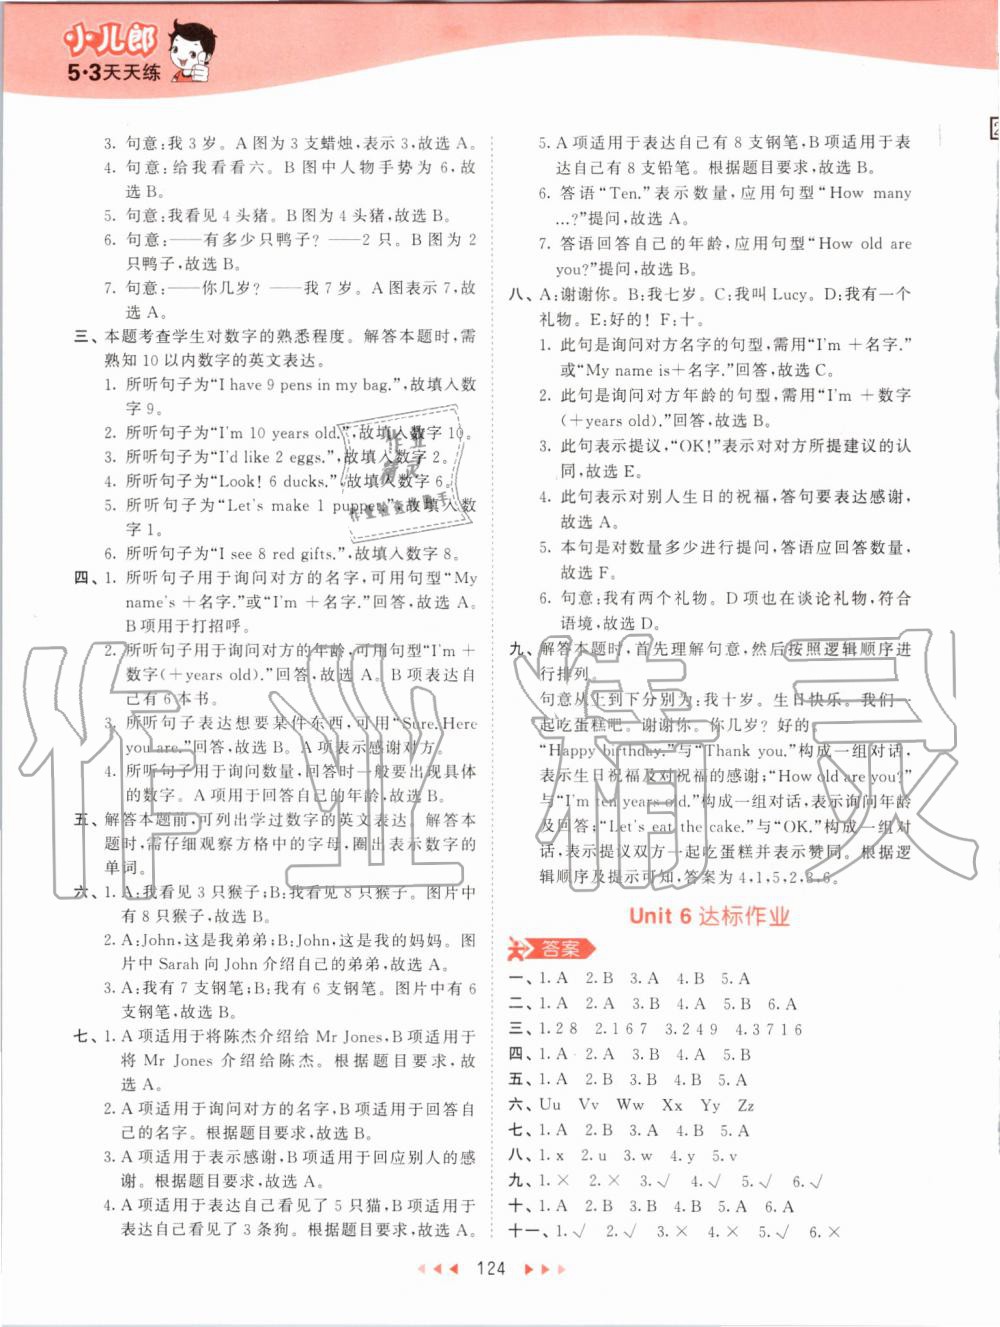 小儿郎
5·3天天练
3. 句意:我 3 岁。A 图为 3 支蜡烛,表示 3,故选 A。
4. 句意:给我看看六。B 图中人物手势为 6,故
选 B。
5. 句意:我看见 4 头猪。B 图为 4 头猪,故选 B。
6. 句意:——有多少只鸭子? ——2 只。B 图为 2
只鸭子,故选 B。
7. 句意:——你几岁? ——我 7 岁。A 图表示 7,故
选 A。
三、本题考查学生对数字的熟悉程度。解答本题时,需
熟知 10 以内数字的英文表达。
1. 所听句子为“I have 9 pens in my bag.”,故填入数
字 9。
2. 所听句子为“I'm 10 years old.”,故填入数字 10。
3. 所听句子为“I'd like 2 eggs.”,故填入数字 2。
4. 所听句子为“Look! 6 ducks.”,故填入数字 6。
5. 所听句子为“Let's make 1 puppet.”,故填入数
字 1。
6. 所听句子为“I see 8 red gifts.”,故填入数字 8。
四、1. 所听句子用于询问对方的名字,可用句型“My
name's +名字.”或“I'm +名字.”回答,故选 A。
B 项用于打招呼。
2. 所听句子用于询问对方的年龄,可用句型“I'm +
数字(+years old).”回答,故选 A。B 项表达自
己有 6 本书。
3. 所听句子表达想要某件东西,可用“Sure. Here
you are.”回答,故选 B。A 项表示感谢对方。
4. 所听句子用于询问数量,回答时一般要出现具体
的数字。A 项用于回答自己的年龄,故选 B。
五、解答本题前,可列出学过数字的英文表达。解答本
题时,需仔细观察方格中的字母,圈出表示数字的
单词。
六、1. A:我看见 3 只猴子;B:我看见 8 只猴子。图片中
有 8 只猴子,故选 B。
2. A:John,这是我弟弟;B:John,这是我的妈妈。图
片中 Sarah 向 John 介绍自己的弟弟,故选 A。
3. A:我有 7 支钢笔;B:我有 6 支钢笔。图片中有 6
支钢笔,故选 B。
七、1. A 项适用于将陈杰介绍给 Mr Jones,B 项适用于
将 Mr Jones 介绍给陈杰。根据题目要求,故
选 A。
2. A 项适用于询问对方的名字,B 项适用于回答自
己的名字。根据题目要求,故选 B。
3. A 项适用于表示感谢,B 项适用于回应别人的感
谢。根据题目要求,故选 A。
4. A 项适用于表达自己看见了 5 只猫,B 项适用于
表达自己看见了 3 条狗。根据题目要求,故选 A。
5. A 项适用于表达自己有 8 支钢笔,B 项适用于表
达自己有 8 支铅笔。根据题目要求,故选 B。
6. 答语“Ten.”表示数量,应用句型“How many
...?”提问,故选 A。
7. 答语回答自己的年龄,应用句型“How old are
you?”提问,故选 B。
八、A:谢谢你。B:我七岁。C:我叫 Lucy。D:我有一个
礼物。E:好的! F:十。
1. 此句是询问对方名字的句型,需用“I'm +名字.”
或“My name is+名字.”回答,故选 C。
2. 此句是询问对方年龄的句型,需用“I'm +数字
(+years old).”回答,故选 B。
3. 此句表示提议,“OK!”表示对对方所提建议的认
同,故选 E。
4. 此句表示对别人生日的祝福,答句要表达感谢,
故选 A。
5. 本句是对数量多少进行提问,答语应回答数量,
故选 F。
6. 句意:我有两个礼物。D 项也在谈论礼物,符合
语境,故选 D。
九、解答本题时,首先理解句意,然后按照逻辑顺序进
行排列。
句意从上到下分别为:我十岁。生日快乐。我们一
起吃蛋糕吧。谢谢你。你几岁? 好的。
“Happy birthday.”与“Thank you.”构成一组对话,
表示生日祝福及对祝福的感谢;“How old are you?”
与“I'm ten years old.”构成一组对话,表示询问年龄
及回答;“Let's eat the cake.”与“OK.”构成一组对
话,表示提议双方一起吃蛋糕并表示赞同。根据逻
辑顺序及提示可知,答案为 4,1,5,2,3,6。
Unit 6 达标作业
答案
一、1. A 2. B 3. A 4. B 5. A
二、1. A 2. A 3. B 4. A 5. B 6. A
三、1. 2 8 2. 1 6 7 3. 2 4 9 4. 3 7 1 6
四、1. A 2. A 3. B 4. A 5. B
五、1. A 2. B 3. B 4. B 5. A
六、Uu Vv Ww Xx Yy Zz
七、1. A 2. B 3. A 4. B 5. A
八、1. x 2. u 3. w 4. y 5. v
九、1. × 2. × 3. √ 4. √ 5. √ 6. √
十、1. A 2. B 3. A 4. A 5. B 6. A
十一、1. √ 2. √ 3. × 4. × 5. √ 6. ×
124
作业精灵
作业
精灵
作业检查小助手